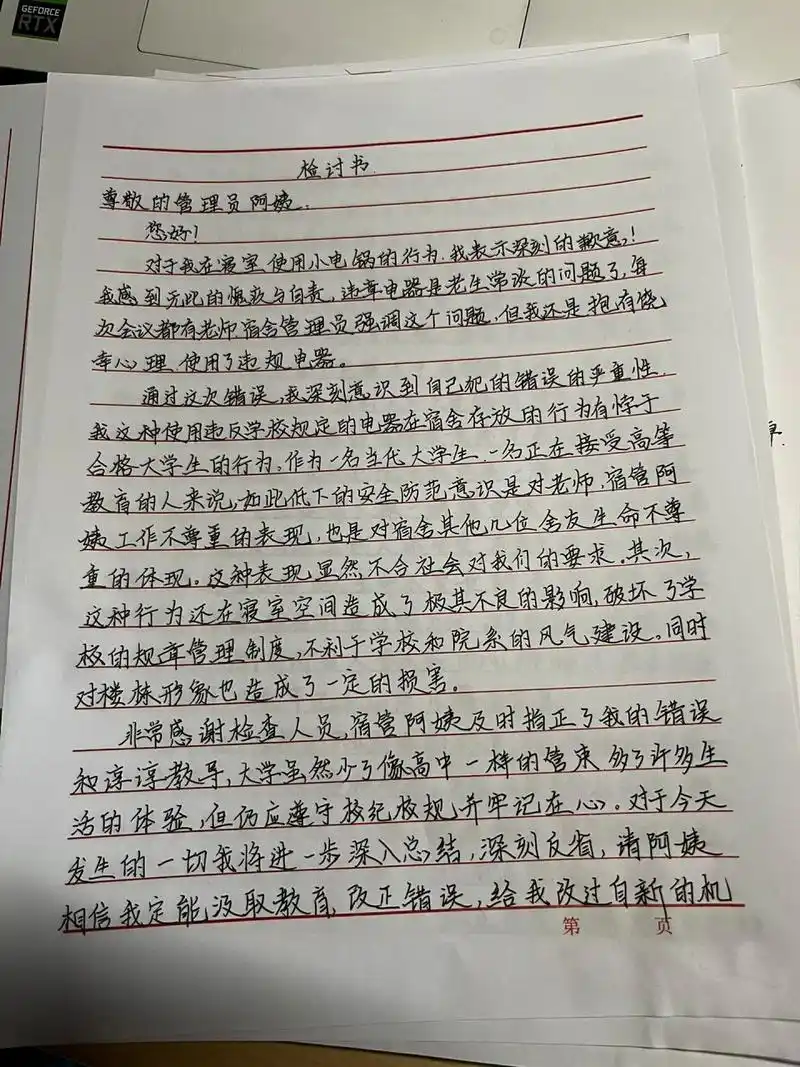 GEFORCE
RTX
检讨书
尊敬的管理员阿姨:
您好!
对于我在寝室使用小电锅的行为,我表示深刻的歉意!
我感到无比的愧疚与自责,违章电器是老生常谈的问题了,每
次会议都有老师宿舍管理员强调这个问题,但我还是抱有侥
幸心理,使用了违规电器。
通过这次错误,我深刻意识到自己犯的错误的严重性.
我这种使用违反学校规定的电器在宿舍存放的行为有悖于
合格大学生的行为。作为一名当代大学生.一名正在接受高等
教育的人来说,如此低下的安全防范意识是对老师,宿管阿
姨工作不尊重的表现,也是对宿舍其他几位舍友生命不尊
重的体现。这种表现显然不合社会对我们的要求.其次,
这种行为还在寝室空间造成了极其不良的影响,破坏了学
校的规章管理制度,不利于学校和院系的风气建设。同时
对楼栋形象也造成了一定的损害。
非常感谢检查人员,宿管阿姨及时指正了我的错误
和淳淳教导,大学虽然少了像高中一样的管束 多了许多生
活的体验,但仍应遵守校纪校规,并牢记在心。对于今天
发生的一切我将进一步深入总结,深刻反省,请阿姨
相信我定能汲取教育,改正错误,给我改过自新的机
第 页